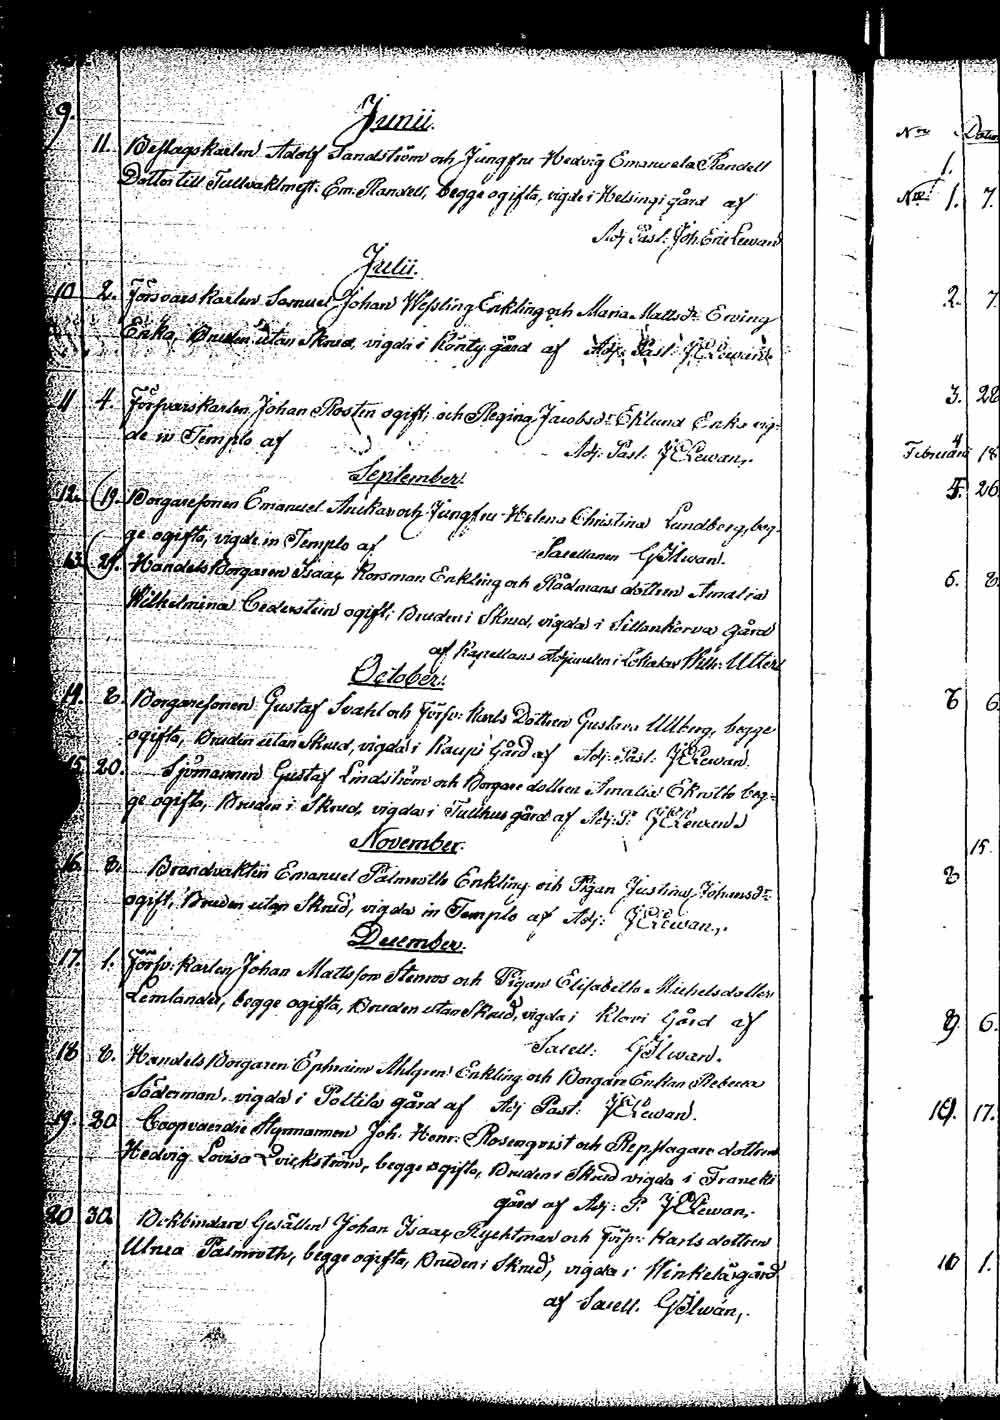 Junii.
9. 11. Beslagskarlen Adolf Sandström och Jungfru Hedvig Emanuela Randell
Dotter till Tullvaktmest: Em: Randell, begge ogifta, vigde i Helsingi gård af
Adj: Past: Joh. Eric Lewan
Julii.
10 2. Försvarskarlen Samuel Johan Wessling Enkling och Maria Mattsdr Erving
Enka, Bruden utan Skrud, vigda i Könty gård af Adj: Past: J E Lewan
11 4. Försvarskarlen Johan Rosten ogift, och Regina Jacobsdr Eklund Enka vig-
de in Templo af Adj: Past: J E Lewan.
September.
12. 19. Borgaresonen Emanuel och Jungfru Helena Christina Lundberg, beg-
ge ogifta, vigde in Templo af Sacellanen G Ilwan.
13. 29. Handels Borgaren Isaac Korsman Enkling och Rådmans dottren Amalia
Wilhelmina Cederstein ogift, Bruden i Skrud, vigda i Sillankorva gård
af Kapellans Adjuncten i Wilh:
October.
14. 8. Borgaresonen Gustaf Svahl och Försv: Karls Dottren Gustava Ullberg, begge
ogifta, Bruden utan Skrud, vigda i Kaupi Gård af Adj: Past: J E Lewan.
15. 20. Sjömannen Gustaf Lindström och Borgare dottren Amalia Ekroth beg-
ge ogifta, Bruden i Skrud, vigda i Tullhus gård af Adj: P: J E Lewan
November.
16. 8. Brandvakten Emanuel Palmroth Enkling och Pigan Justina Johansdr
ogift, Bruden utan Skrud, vigda in Templo af Adj: J E Lewan.
December.
17. 1. Försv: karlen Johan Mattsson Stenros och Pigan Elisabetha Michelsdotter
Lemlander, begge ogifta, Bruden utan Skrud, vigda i Klovi Gård af
Sacell: G Ilwan.
18 8. Handels Borgaren Ephraim Ahlgren Enkling och Borgare Enkan Rebecca
Söderman, vigda i Poltila gård af Adj Past: J E Lewan.
19. 20. Coopvaerdie Styrmannen Joh. Henr: Rosenqvist och Repslagare dottren
Hedvig Lovisa Qvickström, begge ogifta, Bruden i Skrud vigda i Francki
gård af Adj: P: J E Lewan.
20 30. Bokbindare Gesällen Johan Isaac Ryektman och Försv: Karls dottren
Ulrica Palmroth, begge ogifta, Bruden i Skrud, vigda i Winkelägård
af Sacell. G Ilwan.
Nro
1. 7.
2. 7
3. 22
Februarii 4 18
5. 26
6. 8
6
15.
8
9 6.
17.
10 1.